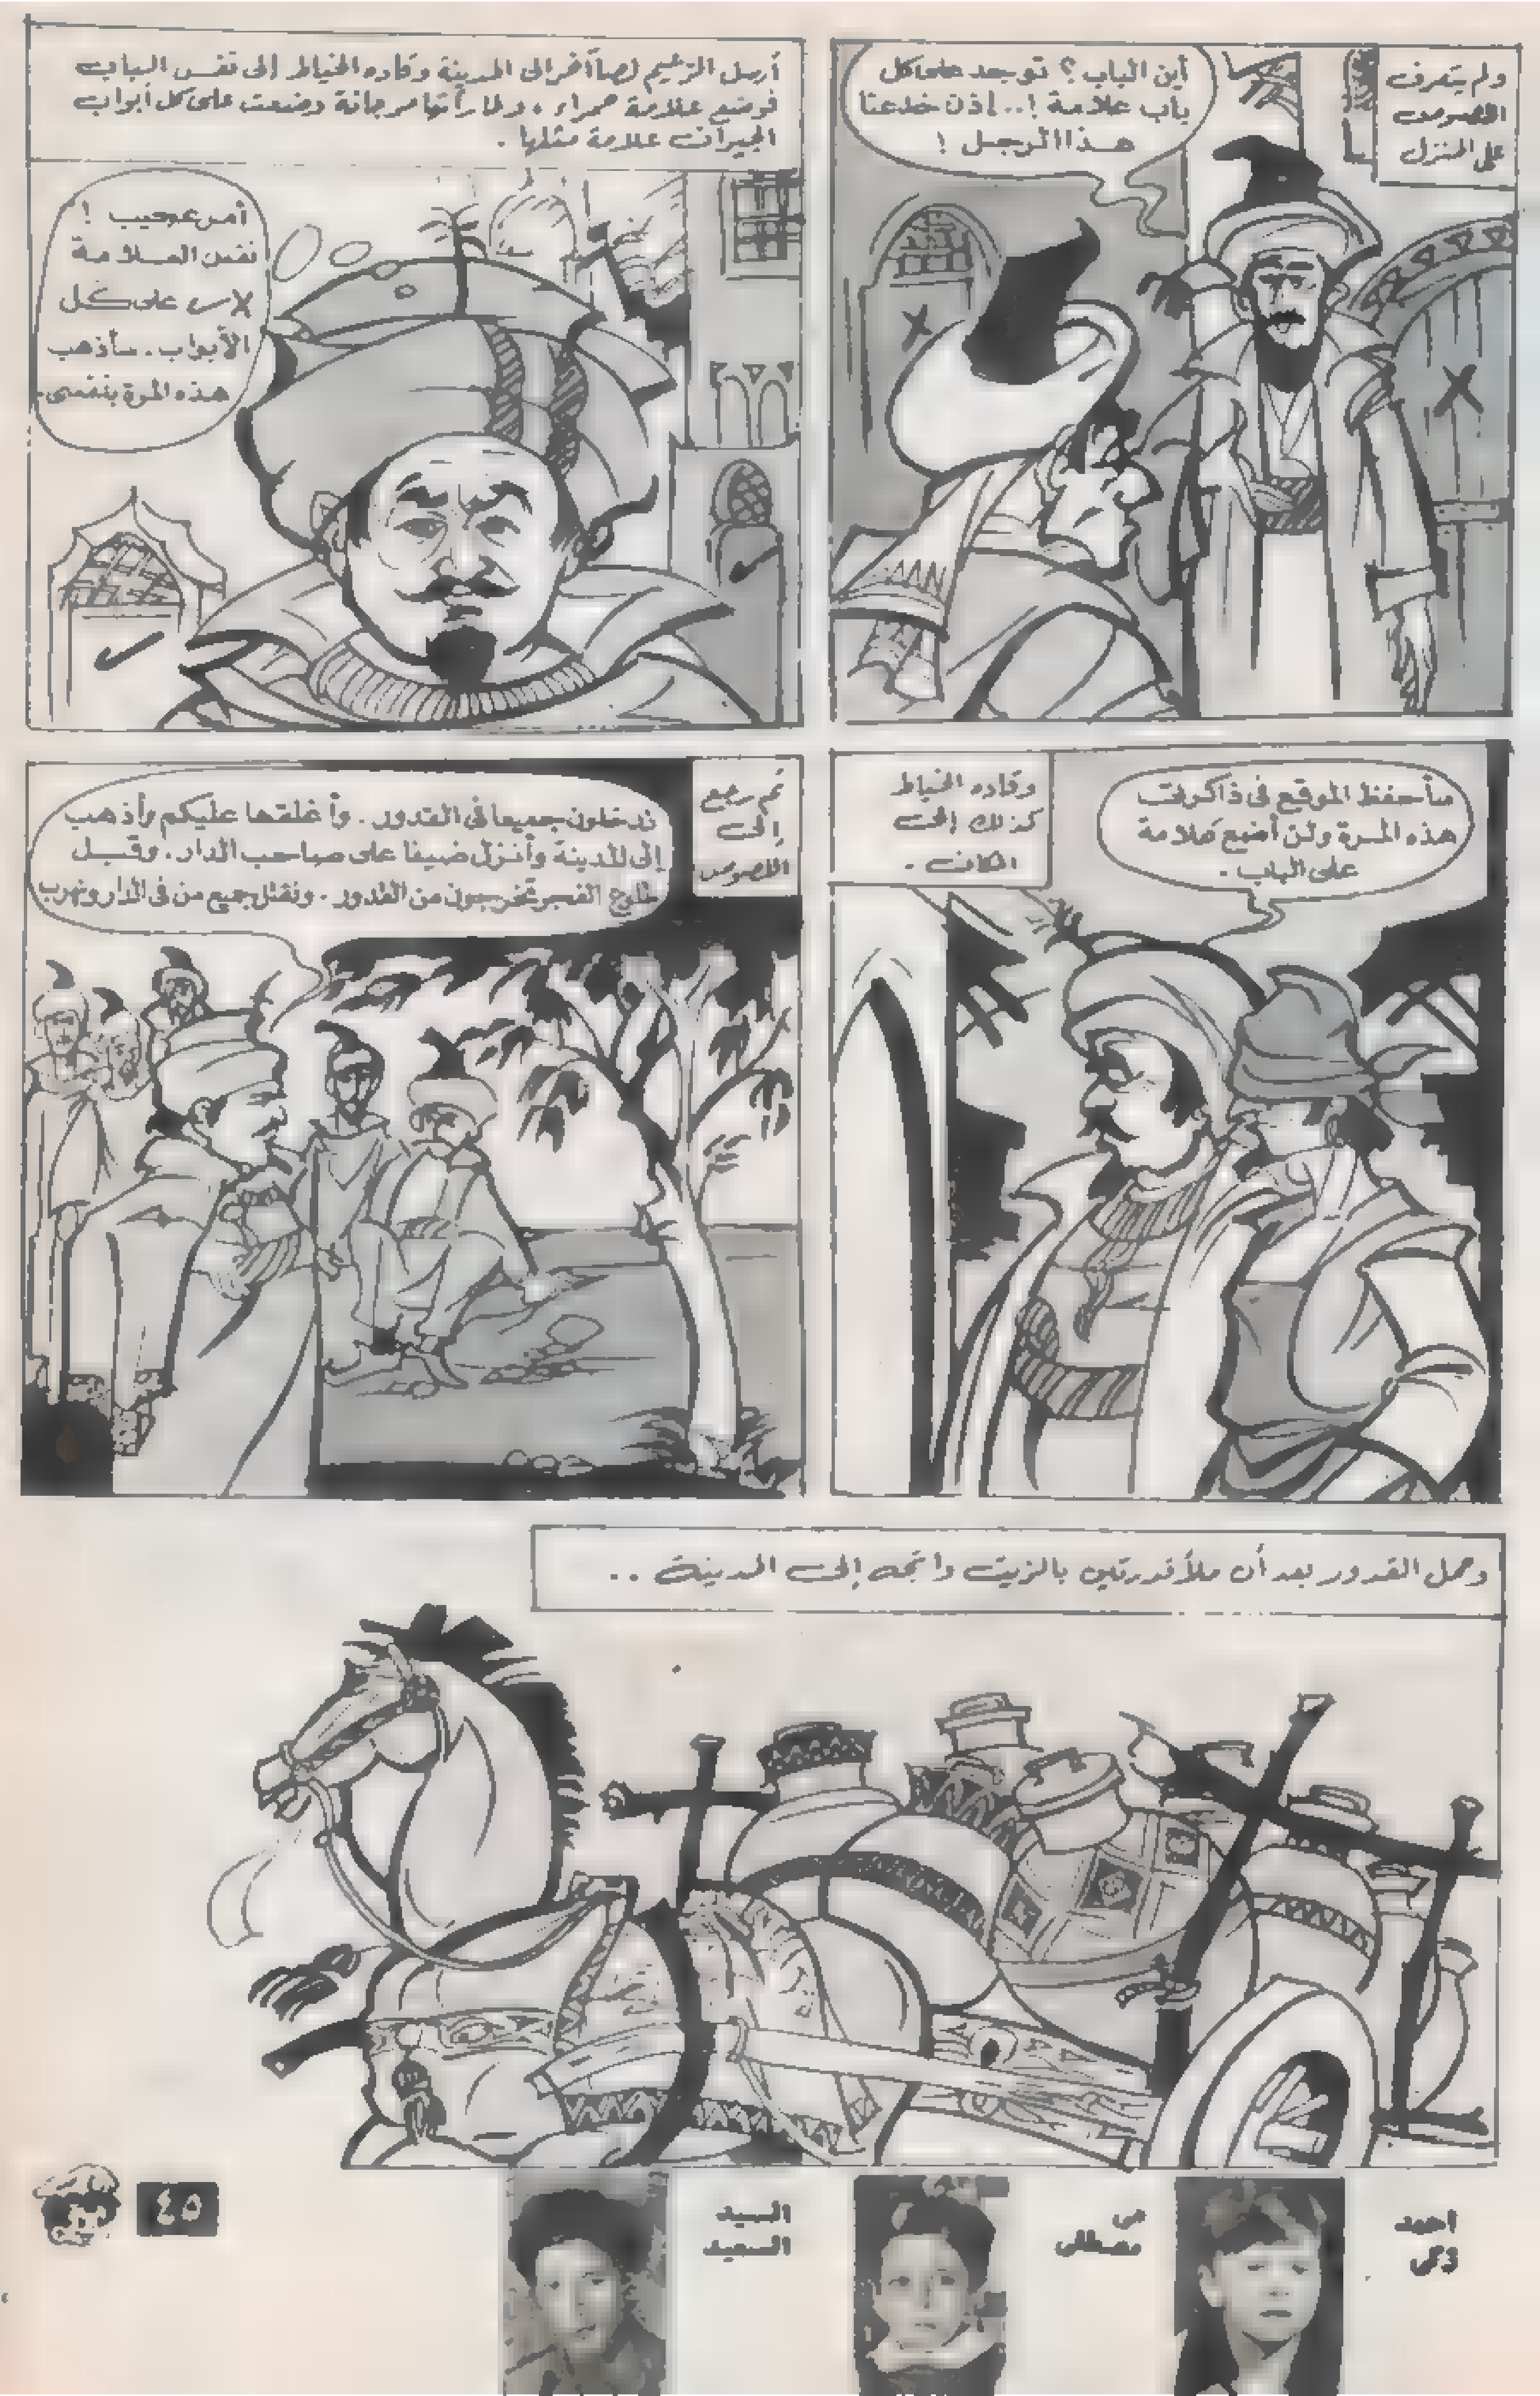 ولم يتعرف
اللصوص
على المنزل
أين الباب؟ توجد على كل
باب علامة !.. إذن خدعنا
هذا الرجل !
أرسل الزعيم لصاً آخر إلى المدينة وقاده الخياط إلى نفس الباب
فوضع علامة حمراء ، ولما رأتها مرجانة وضعت على كل أبواب
الجيران علامة مثلها .
أمر عجيب !
نفس العلامة
على كل
الأبواب . سأذهب
هذه المرة بنفسي .
سأحفظ الموقع فى ذاكرتى
هذه المرة ولن أضع علامة
على الباب .
وقاده الخياط
كذلك إلى
المكان .
ثم رجع
إلى
اللصوص
تدخلون جميعا فى القدور . وأغلقها عليكم وأذهب
إلى المدينة وأنزل ضيفا على صاحب الدار . وقبل
طلوع الفجر تخرجون من القدور . ونقتل جميع من فى الدار ونهرب
وحمل القدور بعد أن ملأ قدرتين بالزيت واتجه إلى المدينة ..
احمد
زكى
منى
مصطفى
السيد
السعيد
٤٥